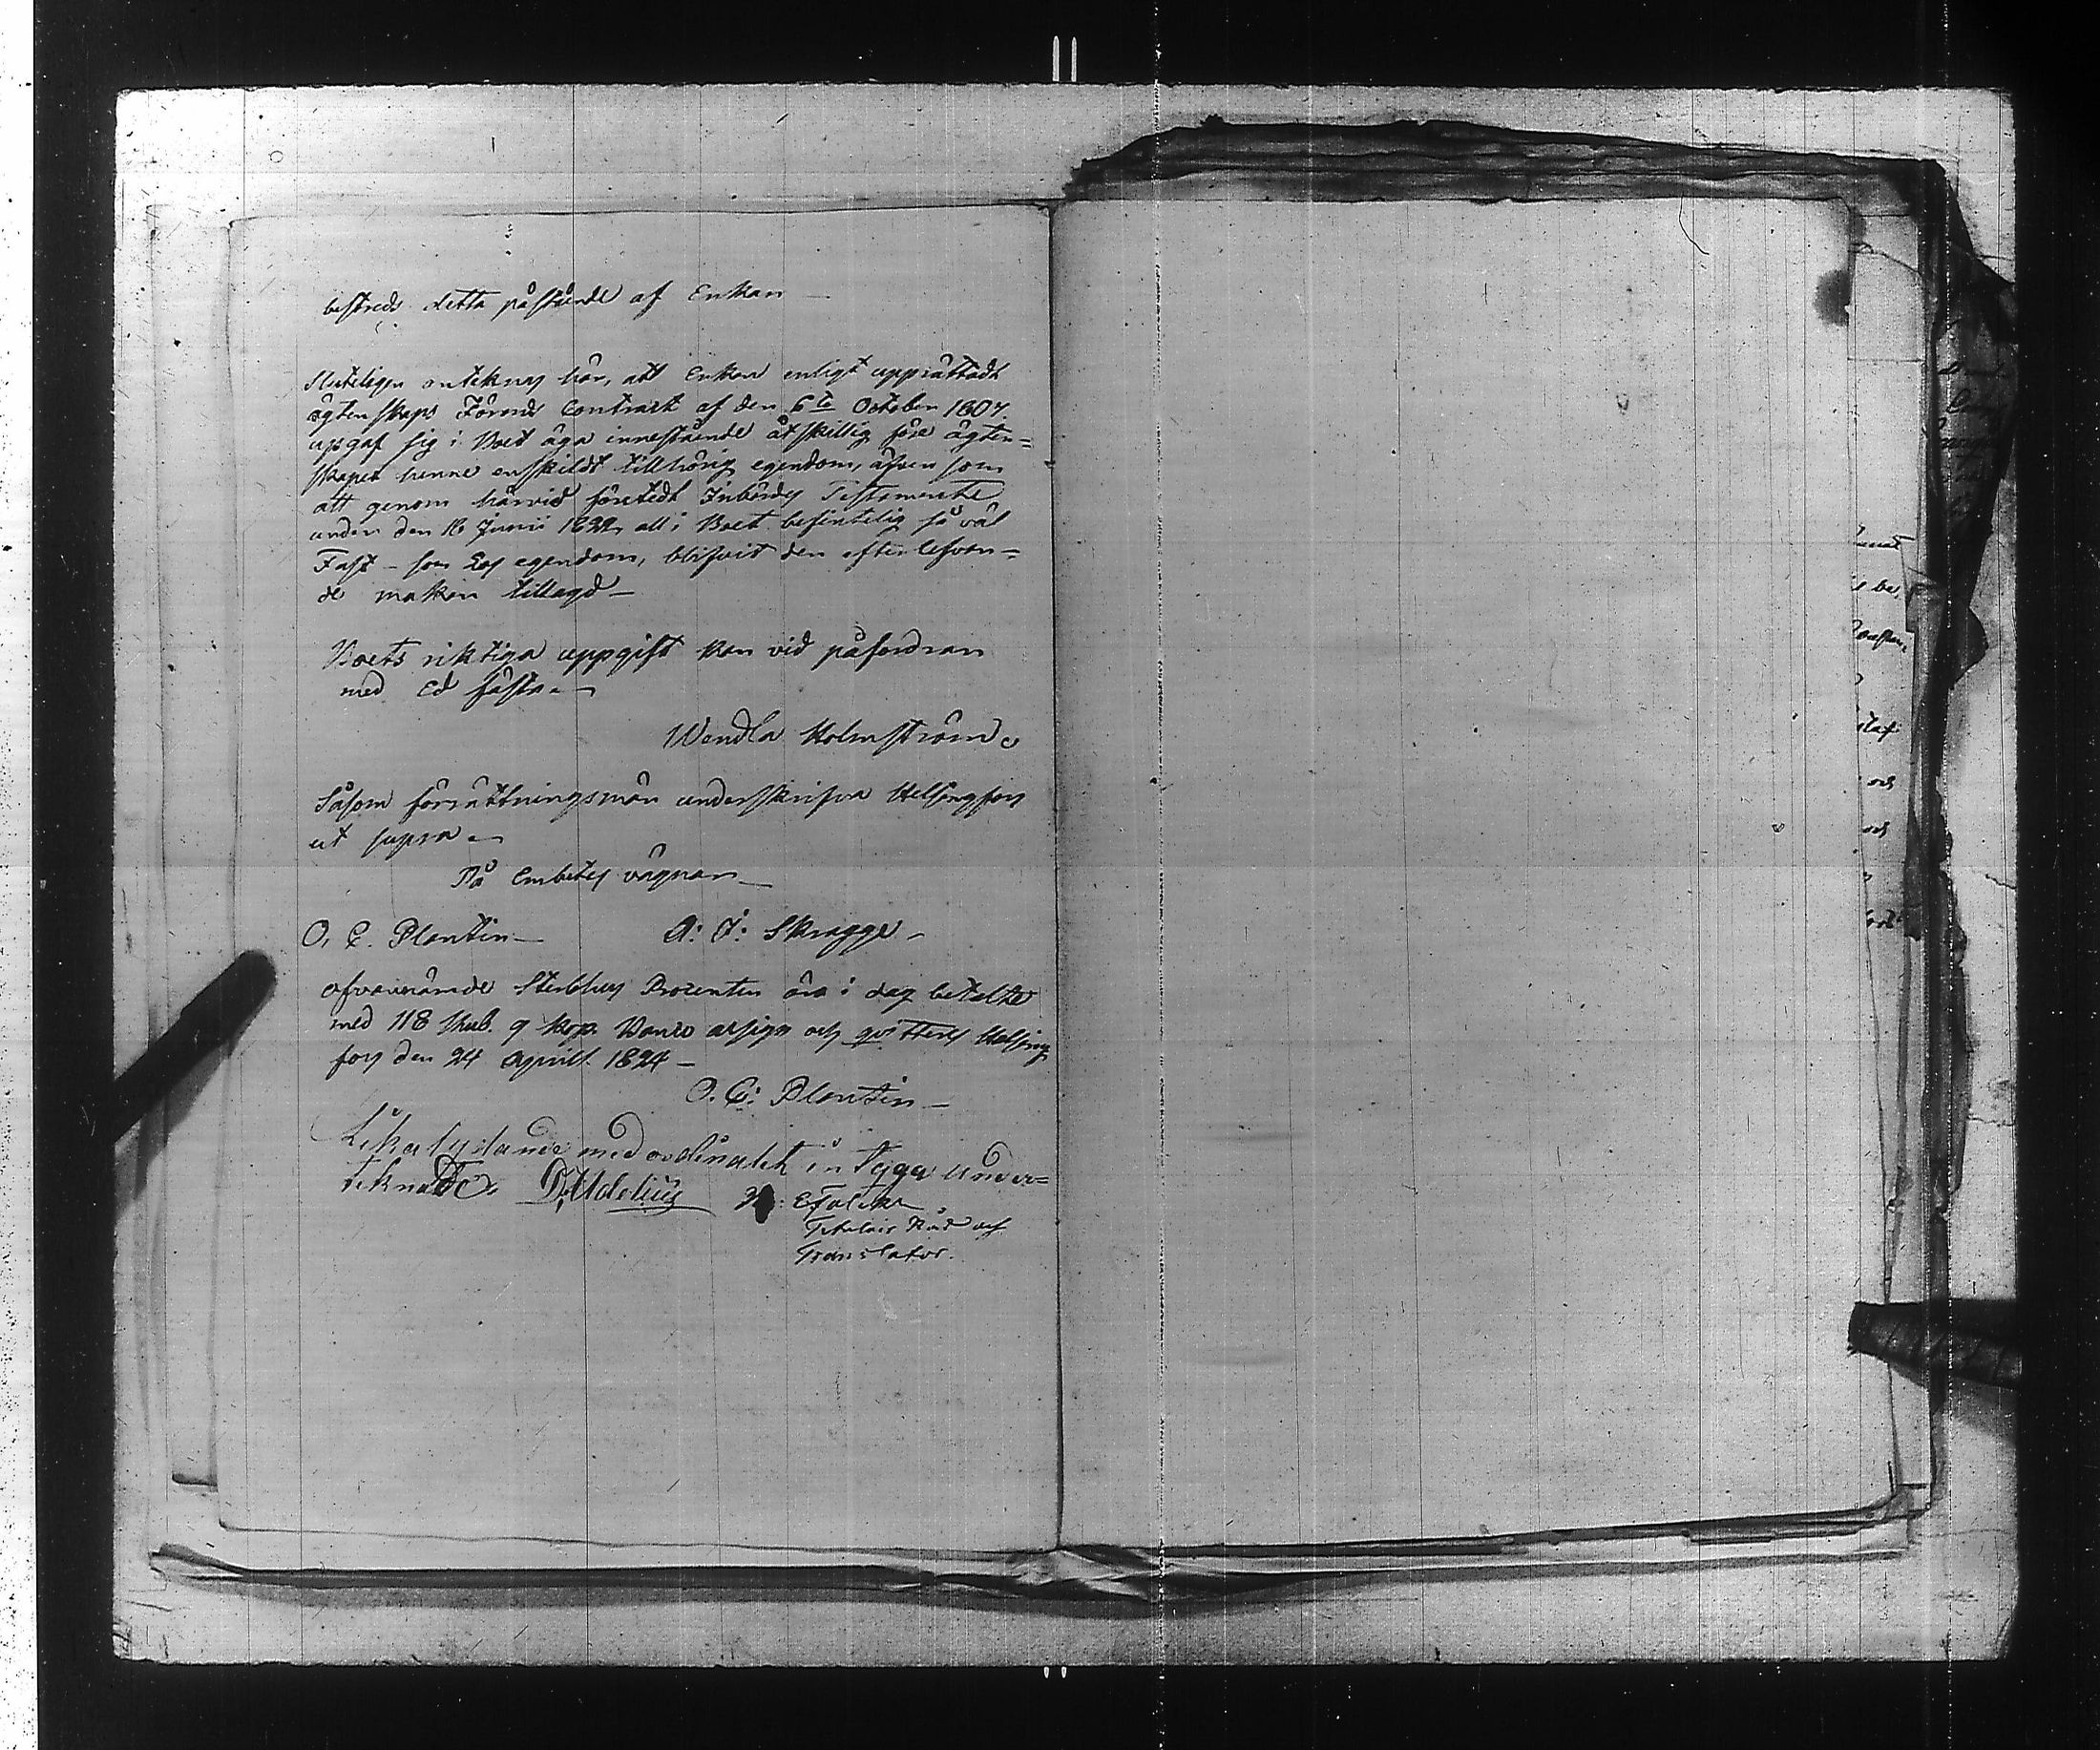 bestreds detta påstående af Enkan
Sluteligen anteknas här, att Enkan enligt upprättadt
ägtenskaps Förords Contract af den 6te October 1807.
uppgaf sig i Boet äga innestående åtskillig före ägten=
skapet henne enskildt tillhörig egendom, äfven som
att genom härvid företedt Inbördes Testamente
under den 16 Junii 1822, all i Boet befintelig så väl
Fast- som Lös egendom, blifvit den efterlefvan=
de makan tillagd
Boets riktiga uppgift kan vid påfordran
med Ed fästas
Wendla Holmström
Såsom förrättningsmän underskrifva Helsingfors
ut supra
På Embetes vägnar
O. C. Plantin A: J: Skragge
ofvannämde Sterbhus Procenter äro i dag betalte
med 118 Rub. 9 kop. Banco assign och qvitteras Helsing
fors den 24 April. 1824
O. C: Plantin
Lika lydande med ordinalet intyga under=
teknade. Falck
Titulair Råd och
Translator.
och
och